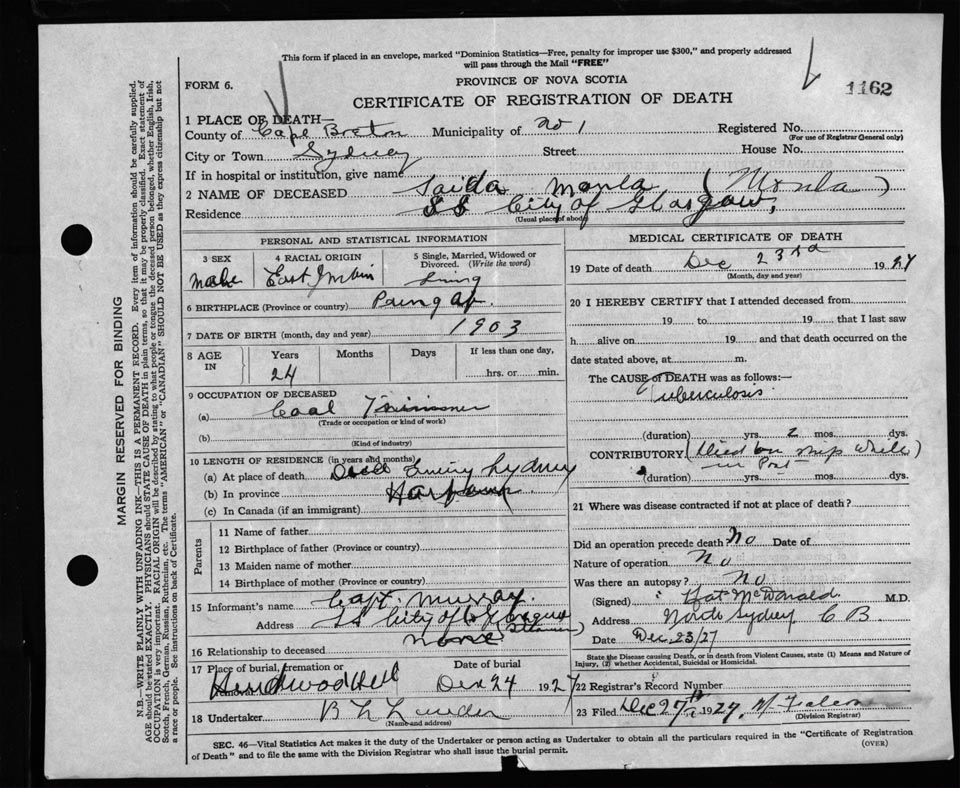 This form if placed in an envelope, marked "Dominion Statistics—Free, penalty for improper use $300," and properly addressed
will pass through the Mail "FREE"
FORM 6.
PROVINCE OF NOVA SCOTIA
1162
CERTIFICATE OF REGISTRATION OF DEATH
1 PLACE OF DEATH—
County of Cape Breton Municipality of No 1 Registered No.
(For use of Registrar General only)
City or Town Sydney Street House No.
If in hospital or institution, give name
2 NAME OF DECEASED Saida Monla (Monla)
Residence SS City of Glasgow,
(Usual place of abode)
PERSONAL AND STATISTICAL INFORMATION
3 SEX 4 RACIAL ORIGIN 5 Single, Married, Widowed or Divorced. (Write the word)
Male East Indian
6 BIRTHPLACE (Province or country)
7 DATE OF BIRTH (month, day and year) 1903
8 AGE IN Years Months Days If less than one day,
24 hrs. or min.
9 OCCUPATION OF DECEASED
(a) Coal Trimmer
(Trade or occupation or kind of work)
(b)
(Kind of industry)
10 LENGTH OF RESIDENCE (in years and months)
(a) At place of death Sydney
(b) In province
(c) In Canada (if an immigrant)
Parents
11 Name of father
12 Birthplace of father (Province or country)
13 Maiden name of mother
14 Birthplace of mother (Province or country)
15 Informant's name Capt. Murray
Address SS City of
16 Relationship to deceased None
17 Place of burial, cremation or removal Date of burial
Dec 24 1927
18 Undertaker
(Name and address)
MEDICAL CERTIFICATE OF DEATH
19 Date of death Dec 23rd 1927
(Month, day and year)
20 I HEREBY CERTIFY that I attended deceased from
19 to 19 that I last saw
h alive on 19 and that death occurred on the
date stated above, at m.
The CAUSE of DEATH was as follows:—
Tuberculosis
(duration) yrs. 2 mos. dys.
CONTRIBUTORY (Died on ship while
in Port)
(duration) yrs. mos. dys.
21 Where was disease contracted if not at place of death?
Did an operation precede death? No Date of
Nature of operation No
Was there an autopsy? No
(Signed) McDonald M.D.
Address North Sydney C B.
Date Dec 23/27
State the Disease causing Death, or in death from Violent Causes, state (1) Means and Nature of
Injury, (2) whether Accidental, Suicidal or Homicidal.
22 Registrar's Record Number
23 Filed Dec 27th 1927,
(Division Registrar)
SEC. 46—Vital Statistics Act makes it the duty of the Undertaker or person acting as Undertaker to obtain all the particulars required in the "Certificate of Registration
of Death" and to file the same with the Division Registrar who shall issue the burial permit.
(OVER)
MARGIN RESERVED FOR BINDING
N.B.—WRITE PLAINLY WITH UNFADING INK—THIS IS A PERMANENT RECORD. Every item of information should be carefully supplied.
AGE should be stated EXACTLY. PHYSICIANS should STATE CAUSE OF DEATH in plain terms, so that it may be properly classified. Exact statement of
OCCUPATION is very important. RACIAL ORIGIN will be described by stating to what people or tongue the deceased person belonged, whether English, Irish,
Scotch, French, German, Russian, Ruthenian, etc. The terms "AMERICAN" or "CANADIAN" SHOULD NOT BE USED as they express citizenship but not
a race or people. See instructions on back of Certificate.